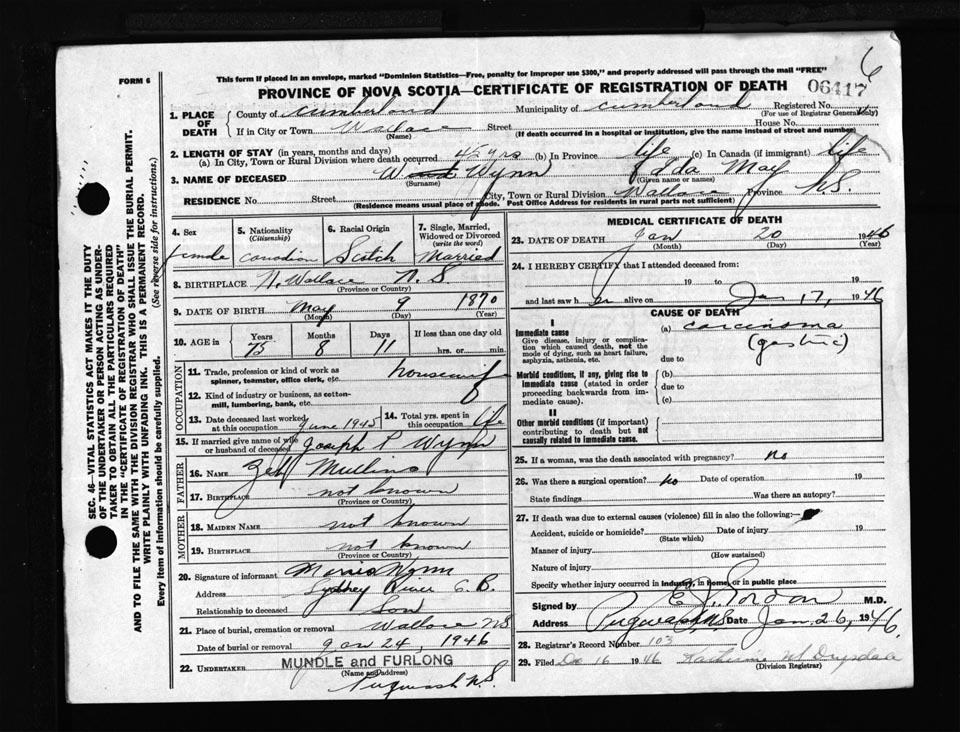 6
FORM 6
This form if placed in an envelope, marked "Dominion Statistics—Free, penalty for improper use $300," and properly addressed will pass through the mail "FREE"
06417
PROVINCE OF NOVA SCOTIA—CERTIFICATE OF REGISTRATION OF DEATH
1. PLACE OF DEATH
County of Cumberland Municipality of Cumberland Registered No.
(For use of Registrar General only)
If in City or Town Wallace Street House No.
(Name) (If death occurred in a hospital or institution, give the name instead of street and number)
2. LENGTH OF STAY (in years, months and days)
(a) In City, Town or Rural Division where death occurred 45 yrs (b) In Province life (c) In Canada (if immigrant) life
3. NAME OF DECEASED Wynn Ada May
(Surname) (Given name or names)
RESIDENCE No. Street City, Town or Rural Division Wallace Province N.S.
(Residence means usual place of abode. Post Office Address for residents in rural parts not sufficient)
4. Sex
female
5. Nationality
(Citizenship)
Canadian
6. Racial Origin
Scotch
7. Single, Married, Widowed or Divorced
(write the word)
Married
8. BIRTHPLACE N. Wallace N.S.
(Province or Country)
9. DATE OF BIRTH May 9 1870
(Month) (Day) (Year)
10. AGE in
Years Months Days If less than one day old
75 8 11 hrs. or min.
OCCUPATION
11. Trade, profession or kind of work as spinner, teamster, office clerk, etc. housewife
12. Kind of industry or business, as cotton-mill, lumbering, bank, etc.
13. Date deceased last worked at this occupation June 1945
14. Total yrs. spent in this occupation life
15. If married give name of wife or husband of deceased Joseph P Wynn
FATHER
16. NAME Zeb Mullins
17. BIRTHPLACE not known
(Province or Country)
MOTHER
18. MAIDEN NAME not known
19. BIRTHPLACE not known
(Province or Country)
20. Signature of informant Morris Wynn
Address Sydney River C.B.
Relationship to deceased Son
21. Place of burial, cremation or removal Wallace NS
Date of burial or removal Jan 24, 1946
22. UNDERTAKER MUNDLE and FURLONG
(Name and Address)
Pugwash N.S.
MEDICAL CERTIFICATE OF DEATH
23. DATE OF DEATH Jan 20 1946
(Month) (Day) (Year)
24. I HEREBY CERTIFY that I attended deceased from:
19 to 19
and last saw her alive on Jan 17, 1946
CAUSE OF DEATH
I
Immediate cause (a) carcinoma
Give disease, injury or complication which caused death, not the mode of dying, such as heart failure, asphyxia, asthenia, etc.
(gastric)
due to
Morbid conditions, if any, giving rise to immediate cause (stated in order proceeding backwards from immediate cause).
(b)
due to
(c)
II
Other morbid conditions (if important) contributing to death but not causally related to immediate cause.
25. If a woman, was the death associated with pregnancy? no
26. Was there a surgical operation? no Date of operation 19
State findings Was there an autopsy?
27. If death was due to external causes (violence) fill in also the following:—
Accident, suicide or homicide? Date of injury 19
(State which)
Manner of injury
(How sustained)
Nature of injury
Specify whether injury occurred in industry, in home, or in public place
Signed by M.D.
Address Pugwash, N.S. Date Jan, 26, 1946.
28. Registrar's Record Number 103
29. Filed Dec 16 1946 Katherine M Drysdale
(Division Registrar)
SEC. 46—VITAL STATISTICS ACT MAKES IT THE DUTY
OF THE UNDERTAKER OR PERSON ACTING AS UNDER-
TAKER TO OBTAIN ALL THE PARTICULARS REQUIRED
IN THE "CERTIFICATE OF REGISTRATION OF DEATH"
AND TO FILE THE SAME WITH THE DIVISION REGISTRAR WHO SHALL ISSUE THE BURIAL PERMIT.
WRITE PLAINLY WITH UNFADING INK. THIS IS A PERMANENT RECORD.
Every item of information should be carefully supplied. (See reverse side for instructions.)